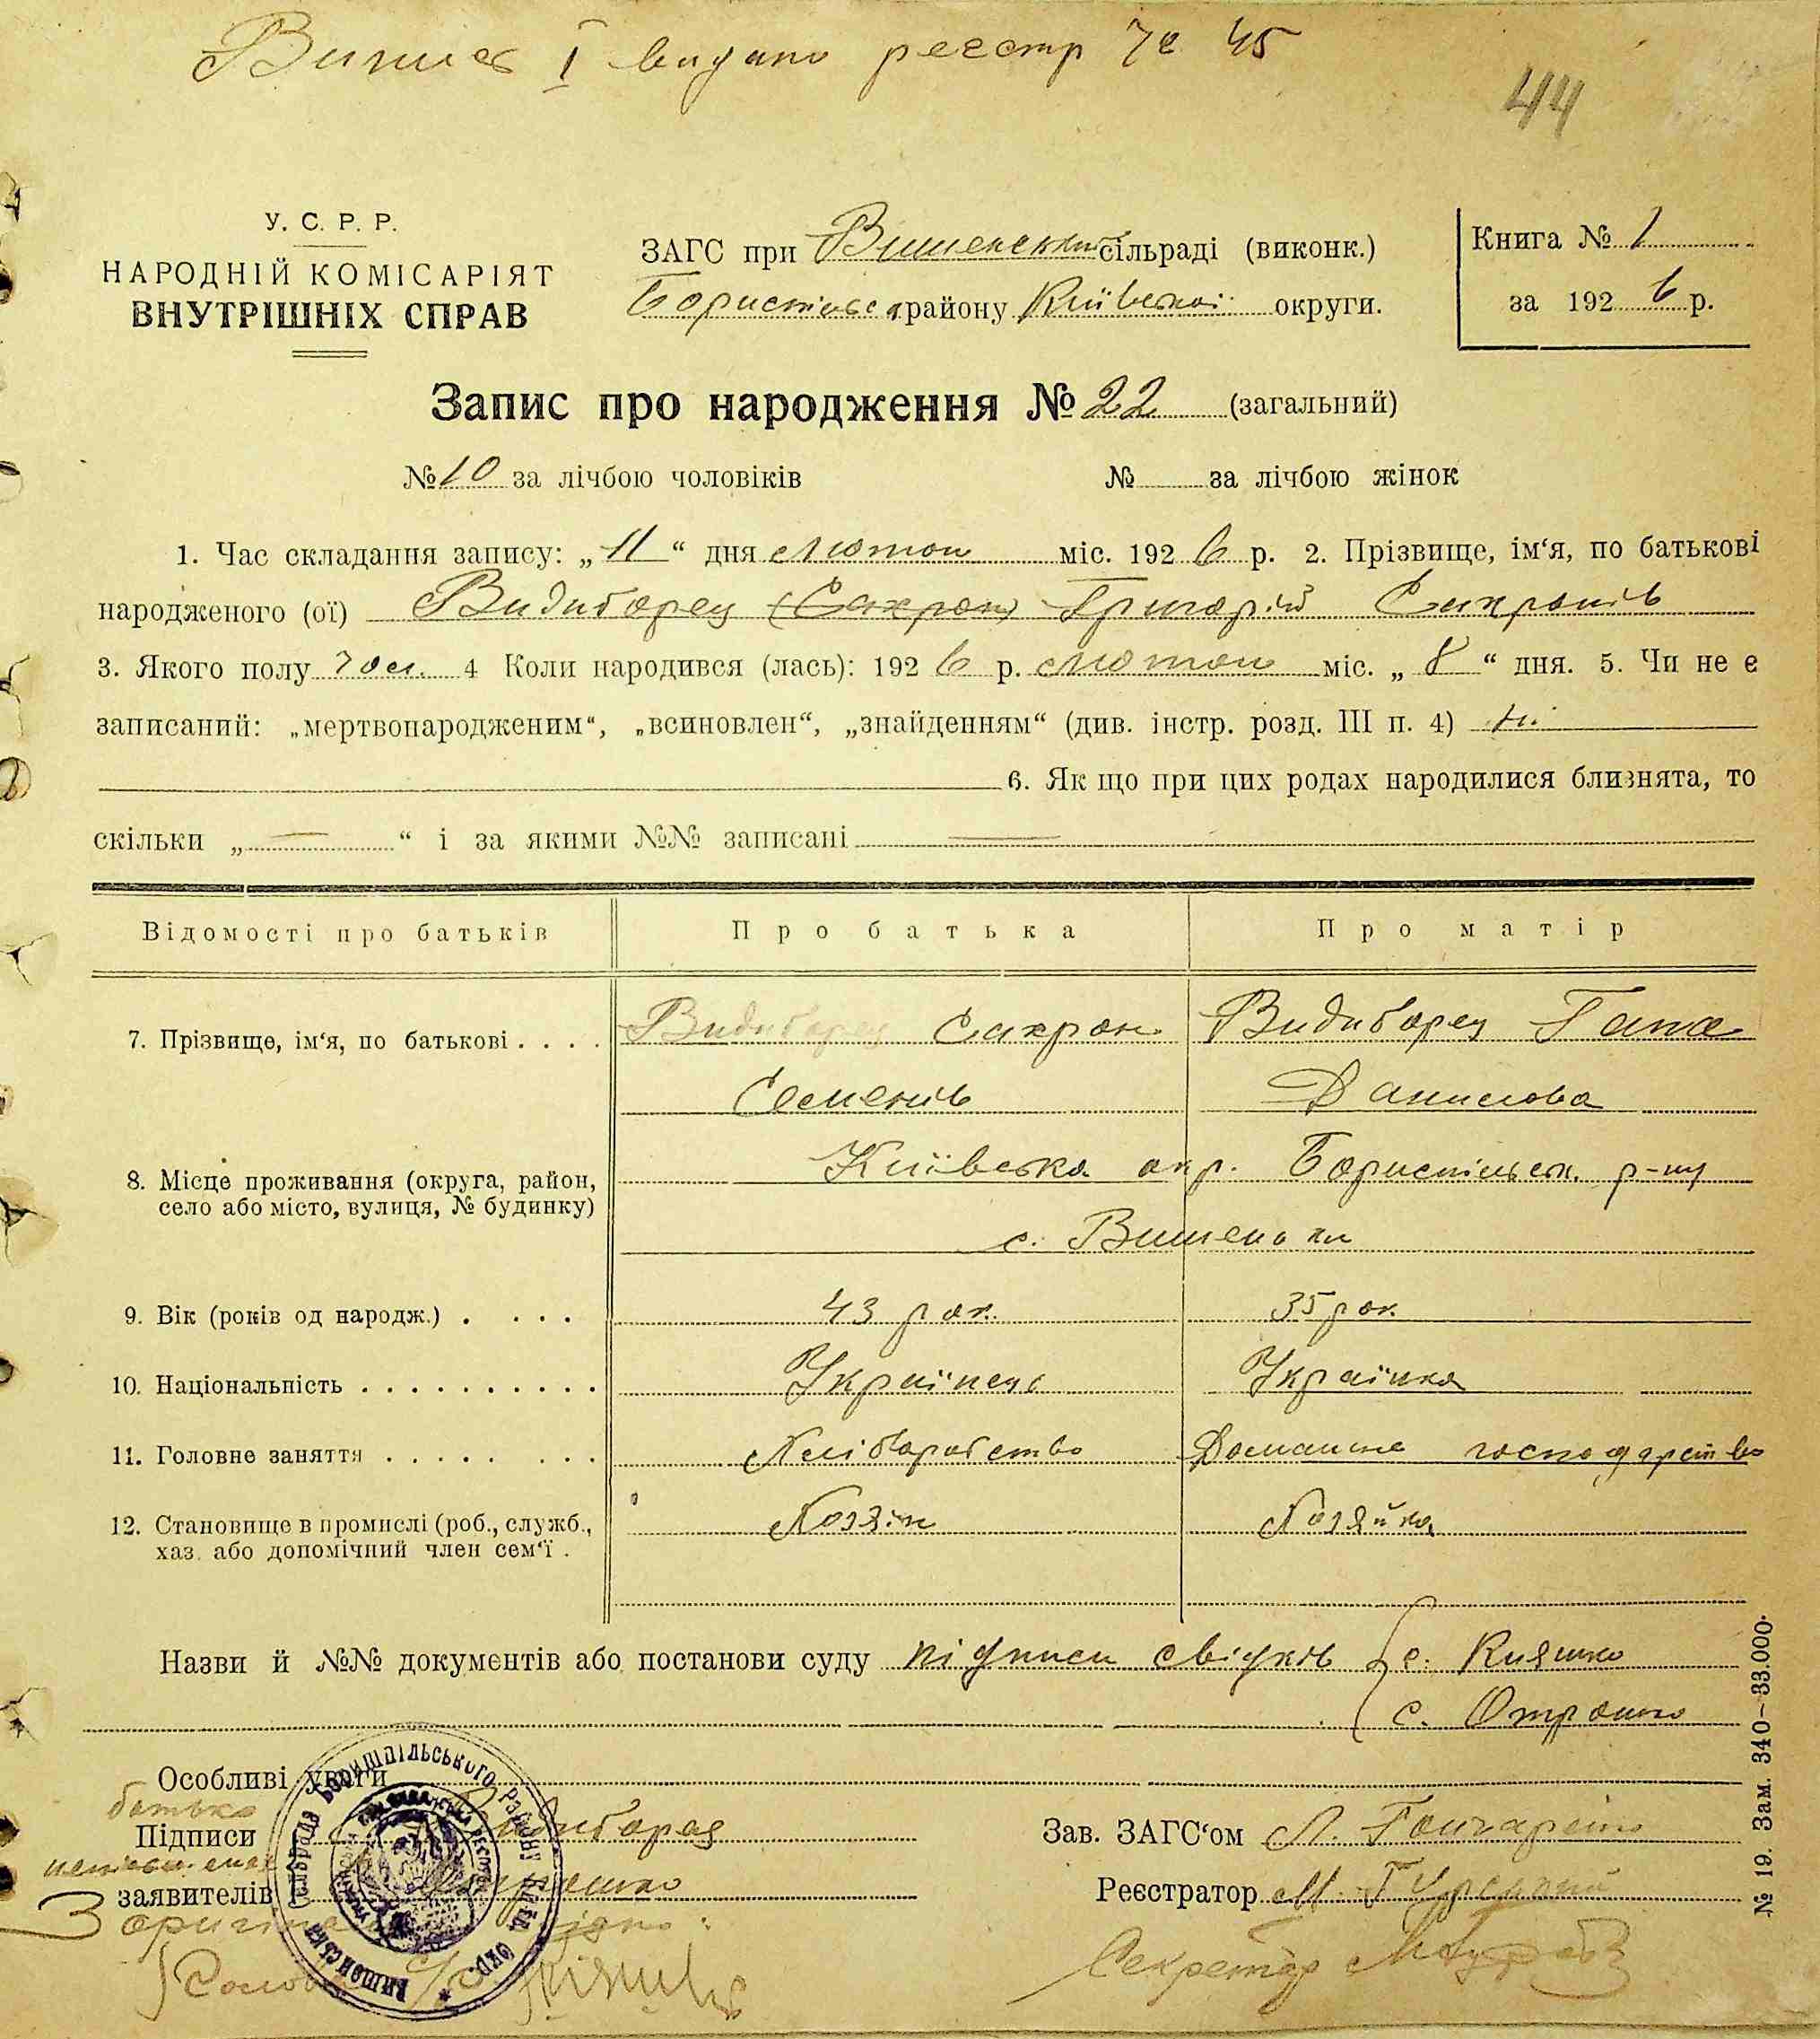 Випис I видано реєстр № 45
44
У. С. Р. Р.
НАРОДНІЙ КОМІСАРІЯТ
ВНУТРІШНІХ СПРАВ
ЗАГС при Вишенський сільраді (виконк.)
Бориспільс. району Київської округи.
Книга № 1
за 1926 р.
Запис про народження № 22 (загальний)
№ 10 за лічбою чоловіків № за лічбою жінок
1. Час складання запису: „11“ дня лютого міс. 1926 р. 2. Прізвище, ім‘я, по батькові
народженого (ої) Видиборец (Сахрон) Григорій Сахронів
3. Якого полу чол. 4 Коли народився (лась): 1926 р. лютого міс. „8“ дня. 5. Чи не є
записаний: „мертвонародженим“, „всиновлен“, „знайденням“ (див. інстр. розд. III п. 4) ні
6. Як що при цих родах народилися близнята, то
скільки „—“ і за якими №№ записані —
Відомості про батьків Про батька Про матір
7. Прізвище, ім‘я, по батькові . . . . Видиборец Сахрон Видиборец Гана
Семенів Данилова
8. Місце проживання (округа, район,
село або місто, вулиця, № будинку)
Київська окр. Бориспільськ. р-ну
с. Вишеньки
9. Вік (років од народж.) . . . . 43 рок. 35 рок
10. Національність . . . . . . . . . . Українець Українка
11. Головне заняття . . . . . . . . Хліборобство Домашне господарство
12. Становище в промислі (роб., служб.,
хаз. або допомічний член сем‘ї .
Хозяін Хозяйка
Назви й №№ документів або постанови суду підписи свідків с. Кияшко
с. Отрошко
Особливі уваги
батько
Підписи Видиборец
заявителів
Зав. ЗАГС‘ом Л. Гончаренко
Реєстратор М.
З оригіналом згідно:
Голова с/р
Секретар
Сільрада Бориспільського району Київ. Окр.
№ 19. Зам. 340–33.000.